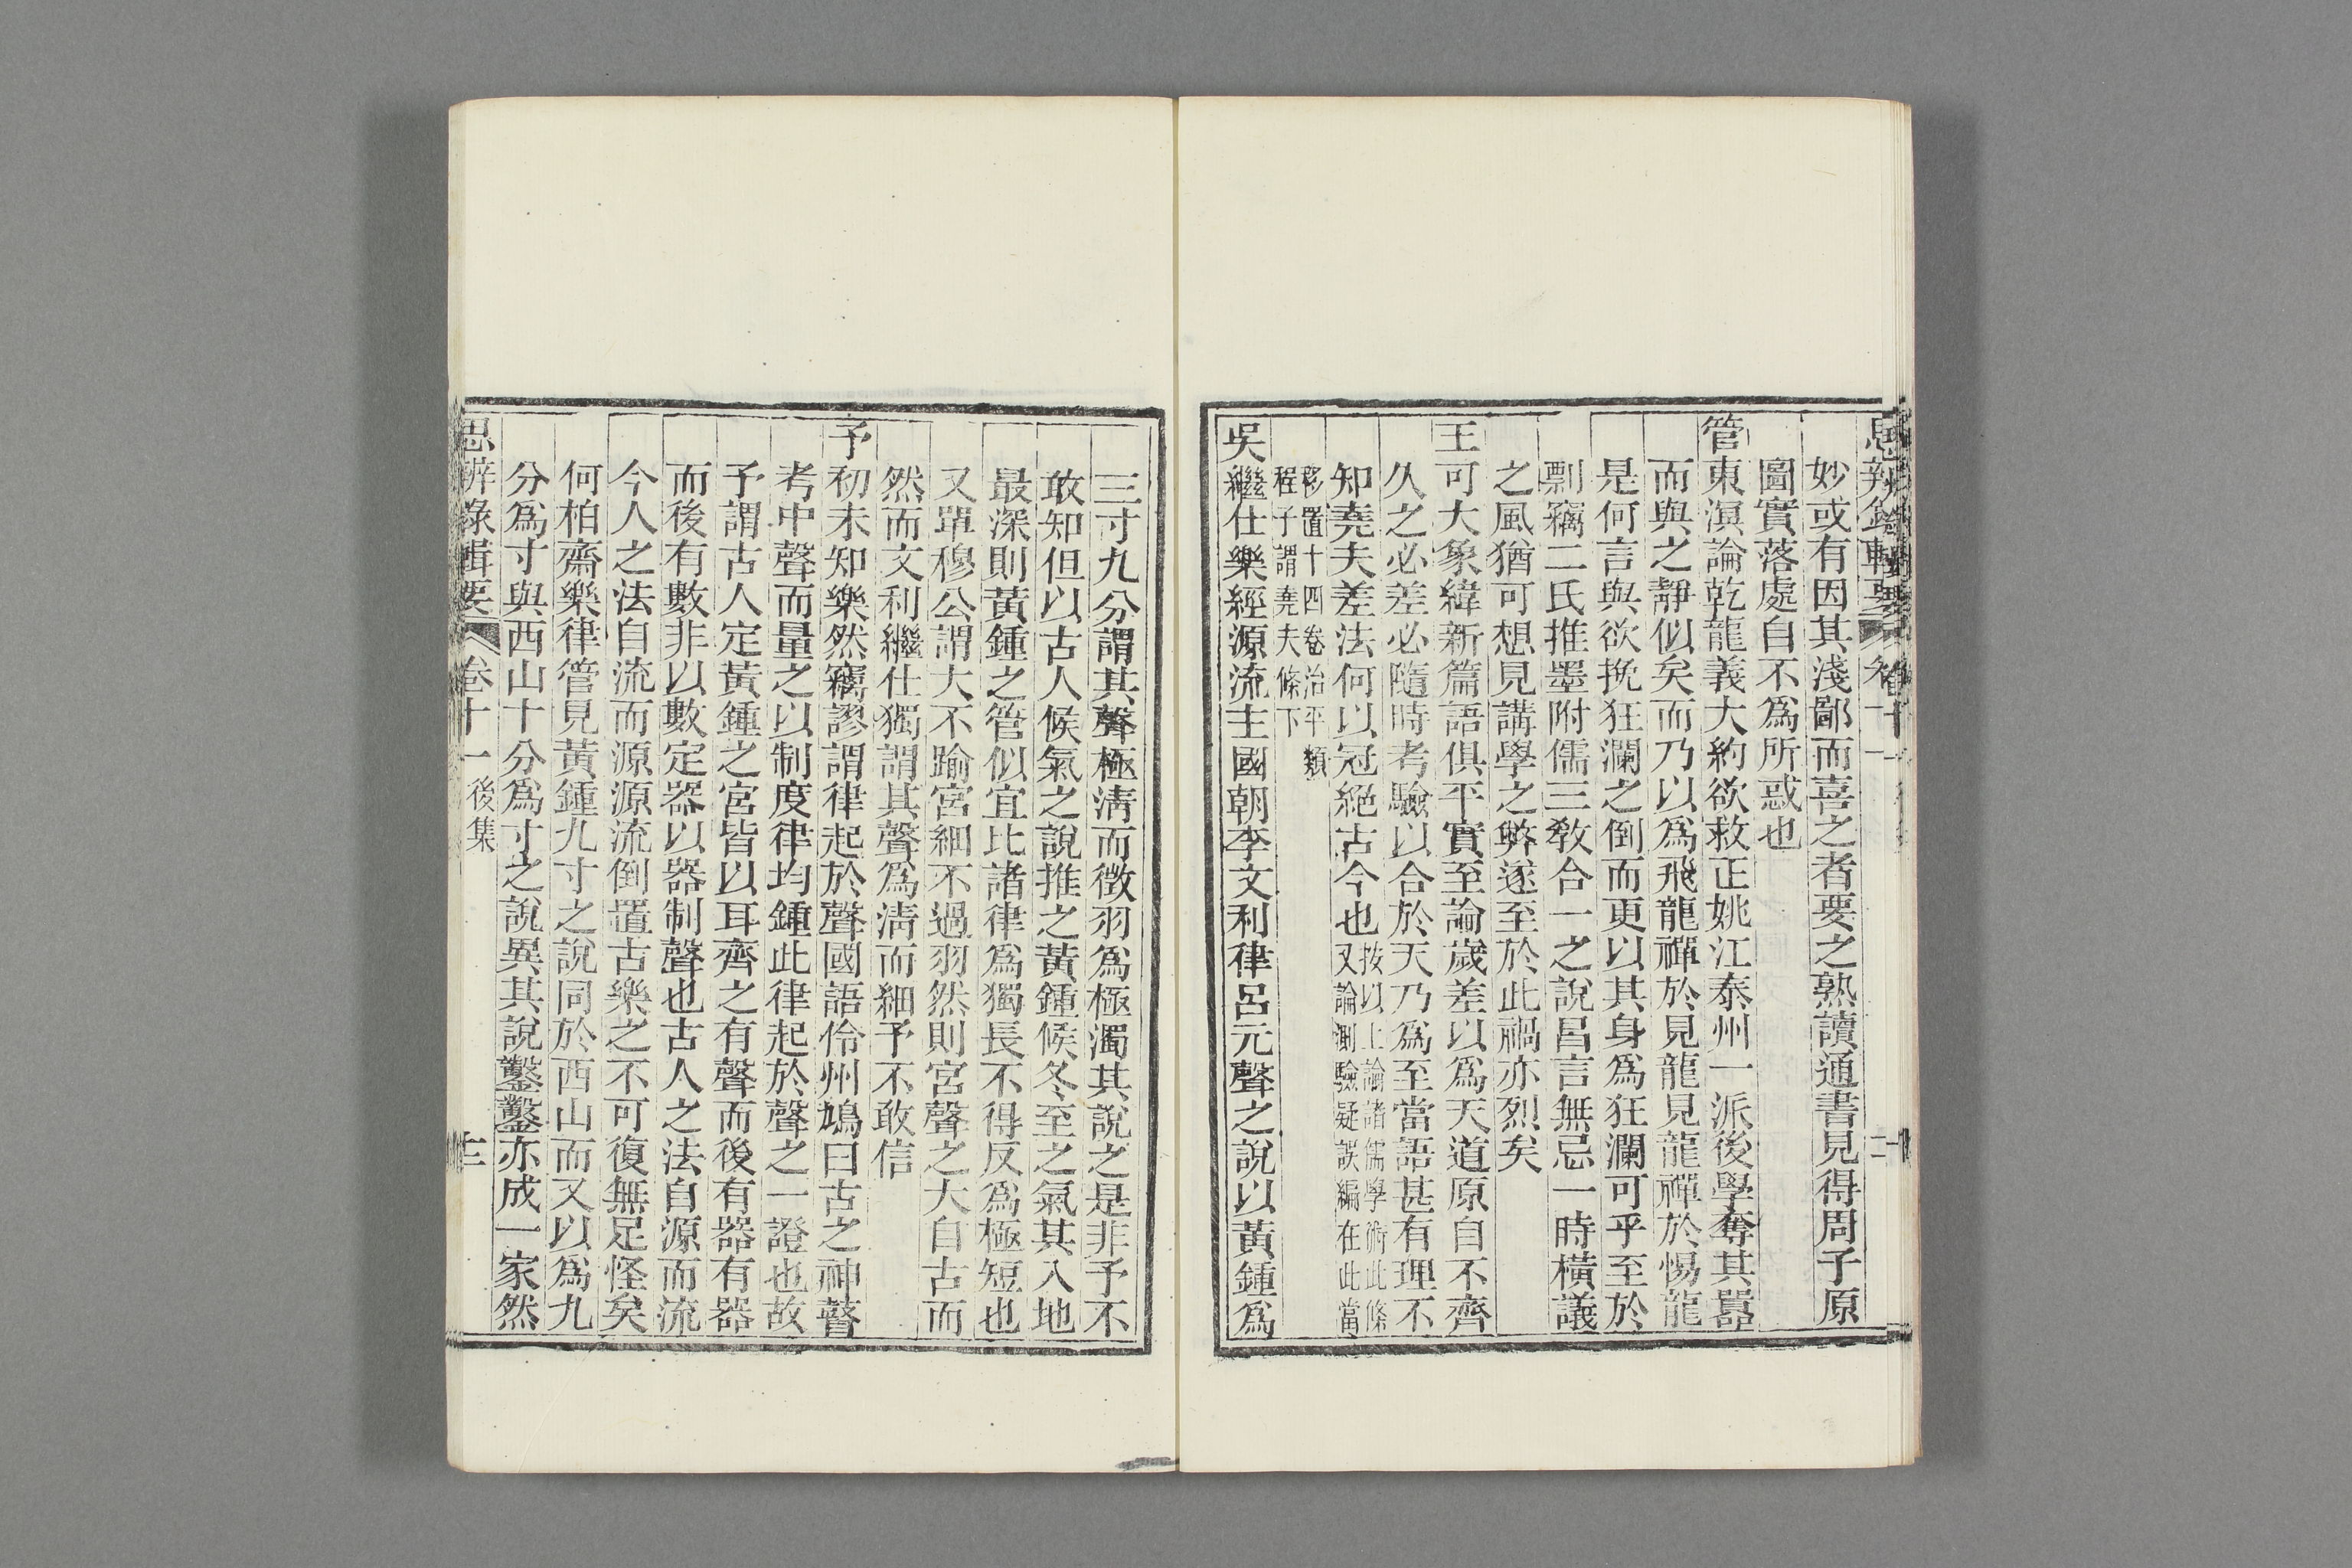 思辨錄輯要 卷十一
妙或有因其淺鄙而喜之者要之熟讀通書見得周子原
圖實落處自不爲所惑也
管東溟論乾龍義大約欲救正姚江泰州一派後學奪其嚣
而與之靜似矣而乃以爲飛龍禪於見龍見龍禪於惕龍
是何言與欲挽狂瀾之倒而更以其身爲狂瀾可乎至於
剽竊二氏推墨附儒三敎合一之說昌言無忌一時橫議
之風猶可想見講學之弊遂至於此禍亦烈矣
王可大象緯新篇語俱平實至論歲差以爲天道原自不齊
久之必差必隨時考驗以合於天乃爲至當語甚有理不
知堯夫差法何以冠絕古今也按以上論諸儒學術此條
又論測驗疑誤編在此當
移置十四卷治平類
程子謂堯夫條下
吳繼仕樂經源流主國朝李文利律呂元聲之說以黃鍾爲
三寸九分謂其聲極淸而徵羽爲極濁其說之是非予不
敢知但以古人候氣之說推之黃鍾候冬至之氣其入地
最深則黃鍾之管似宜比諸律爲獨長不得反爲極短也
又單穆公謂大不踰宮細不過羽然則宮聲之大自古而
然而文利繼仕獨謂其聲爲淸而細予不敢信
予初未知樂然竊謬謂律起於聲國語伶州鳩曰古之神瞽
考中聲而量之以制度律均鍾此律起於聲之一證也故
予謂古人定黃鍾之宮皆以耳齊之有聲而後有器有器
而後有數非以數定器以器制聲也古人之法自源而流
今人之法自流而源源流倒置古樂之不可復無足怪矣
何柏齋樂律管見黃鍾九寸之說同於西山而又以爲九
分爲寸與西山十分爲寸之說異其說鑿鑿亦成一家然
思辨錄輯要 卷十一 後集 十三